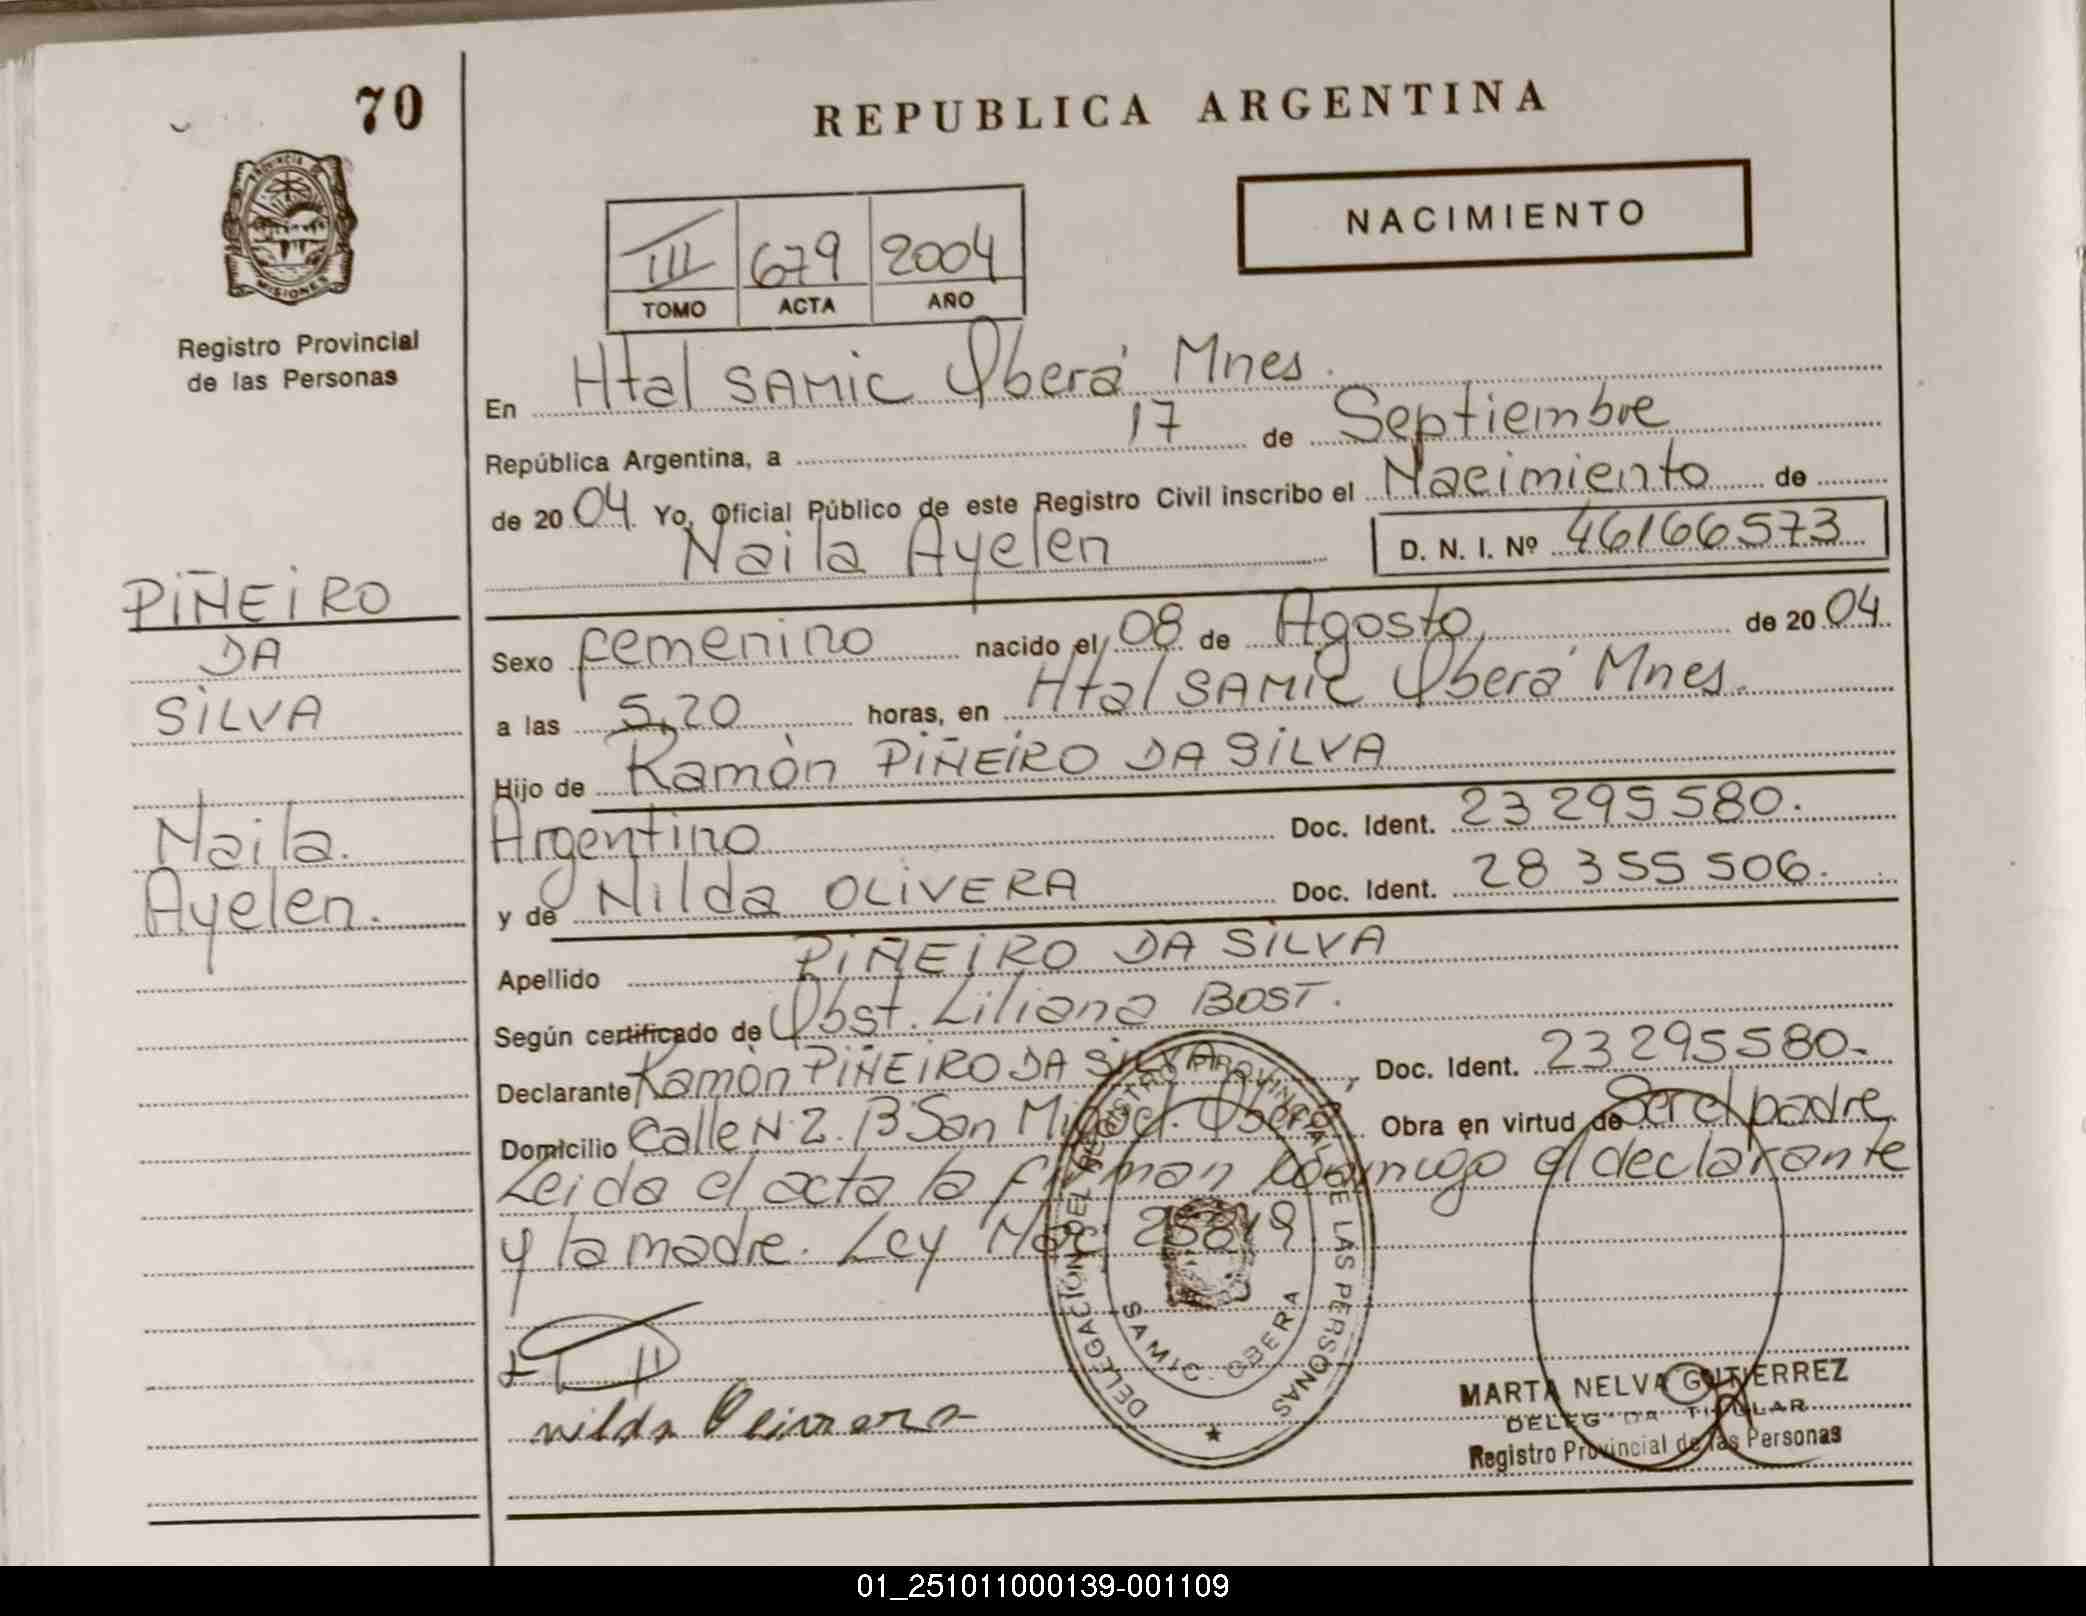 70
REPUBLICA ARGENTINA
PROVINCIA
MISIONES
NACIMIENTO
III 679 2004
TOMO ACTA AÑO
Registro Provincial
de las Personas
En Htal SAMIC Oberá Mnes.
República Argentina, a 17 de Septiembre
de 2004 Yo, Oficial Público de este Registro Civil inscribo el Nacimiento de
Naila Ayelen D. N. I. Nº 46166573
PIÑEIRO
DA
SILVA
Naila.
Ayelen.
Sexo femenino nacido el 08 de Agosto de 2004
a las 5,20 horas, en Htal SAMIC Oberá Mnes.
Hijo de Ramòn PIÑEIRO DA SILVA
Argentino Doc. Ident. 23 295 580.
y de Nilda OLIVERA Doc. Ident. 28 355 506.
Apellido PIÑEIRO DA SILVA
Según certificado de Obst. Liliana BOST.
Declarante Ramòn PIÑEIRO DA SILVA, Doc. Ident. 23 295 580.
Domicilio Calle N 2. Bº San Miguel. Oberá Obra en virtud de Ser el padre
Leida el acta la firman conmigo el declarante
y la madre. Ley Nac. 25819
DELEGACIÓN DEL REGISTRO PROVINCIAL DE LAS PERSONAS
SAMIC OBERA
nilda Olivera
MARTA NELVA GUTIERREZ
DELEGADA TITULAR
Registro Provincial de las Personas
01_251011000139-001109